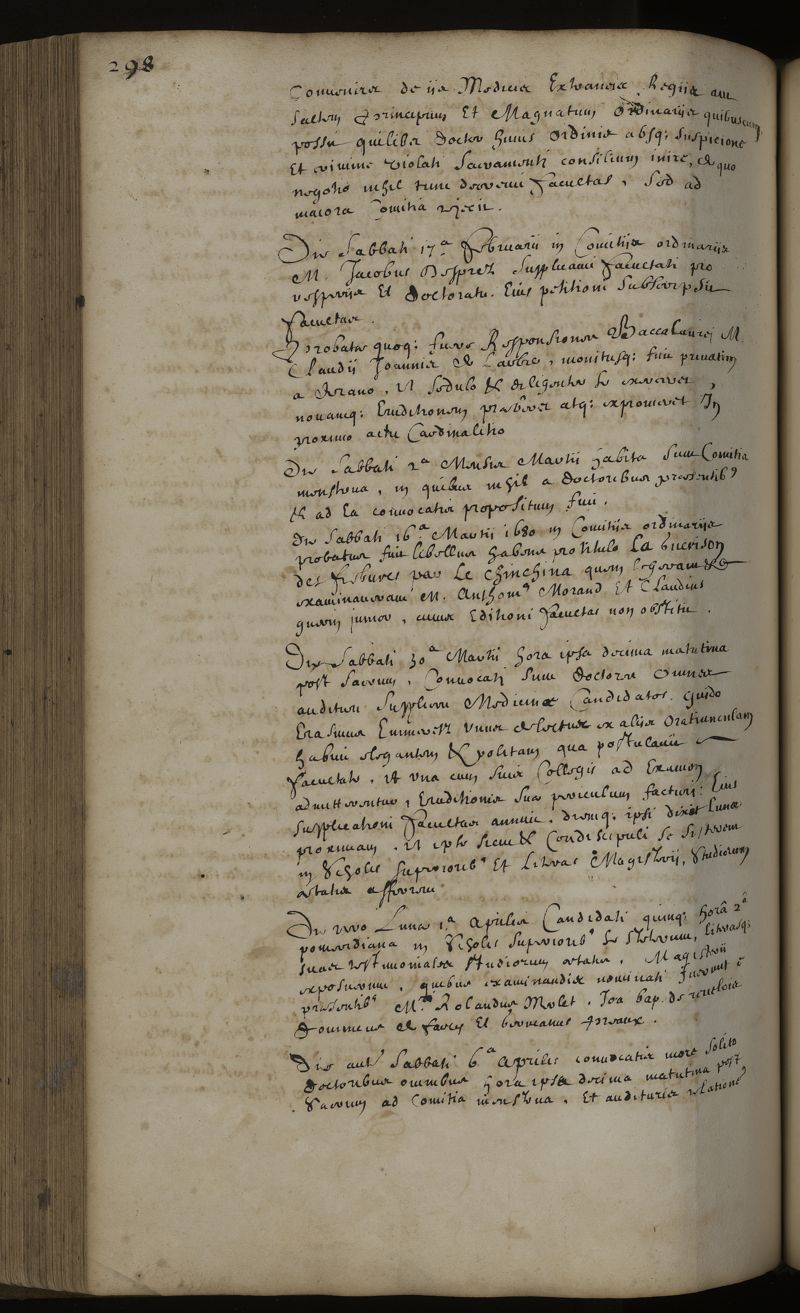 298
Convenire de iis Medicis Extraneis, Regiis aut
saltem Principum Et Magnatum Ordinariis quibuscum
possit quilibet doctor huius ordinis absq; suspicione
Et crimine violati Sacramenti consilium inire, de quo
negotio nihil tunc decrevit Facultas, Sed ad
maiora Comitia rejecit.
Die Sabbati 17.a Februarii in Comitiis ordinariis
M. Jacobus Desprez Supplicavit Facultati pro
vesperiis Et doctoratu. Eius petitioni Subscripsit
Facultas.
Probatae quoq; fuere Responsiones Baccalaurei M.
Claudii Joannis de , monitusq; fuit privatim
a decano, ut sedulo & diligenter se exerceret,
novamq; Eruditionem praeberet atq; expromeret In
proximo actu Cardinalitio
Die Sabbati 2.a Mensis Martii habita sunt Comitia
menstrua, in quibus nihil a doctoribus praesentib9
& ad Ea convocatis propositum fuit.
die Sabbati 16.a Martii 1680 in Comitiis ordinariis
probatus fuit libellus habens pro titulo La Guerison
des fiebvres par Le Chinchina quem legerant &
examinaverant M. Anthon9 Morand Et Claudius
quem junior, cuius Editioni Facultas non obstitit.
Die Sabbati 30.a Martii hora ipsa decima matutina
post Sacrum, Convocati sunt doctores Omnes
audituri Supplices Medicinae Candidatos. Guido
Erasmus Emmerez unus delectus ex aliis Oratiunculam
habuit elegantem & politam qua postulavit
Facultatis, ut una cum suis Collegis ad Examen
admitterentur, Eruditionis suae periculum facturi: Eius
supplicationi Facultas annuit. denuq; ipsi dixit Lunae
proximam, ut ipse sicut & Condiscipuli se sisterent
in Scholis Superiorib9 Et Literas Magisterii, Studiorum
aetatis afferrent
Die vero Lunae 1.a Aprilis Candidati quinq; hora 2a
pomeridiana in Scholis Superiorib9 se stiterunt, literasq;
suas testimoniales studiorum aetatis, Magisterii
exposuerunt, quibus examinandis nominati fuerunt e
praesentib9 M.r Rolandus Mulet, Joa bap. de
Dominicus de Farcy Et Germanus Preaux.
Die aut. Sabbati 6.a Aprilis convocatis more solito
doctoribus omnibus hora ipsa decima matutina post
Sacrum ad Comitia menstrua, Et audituris relatione